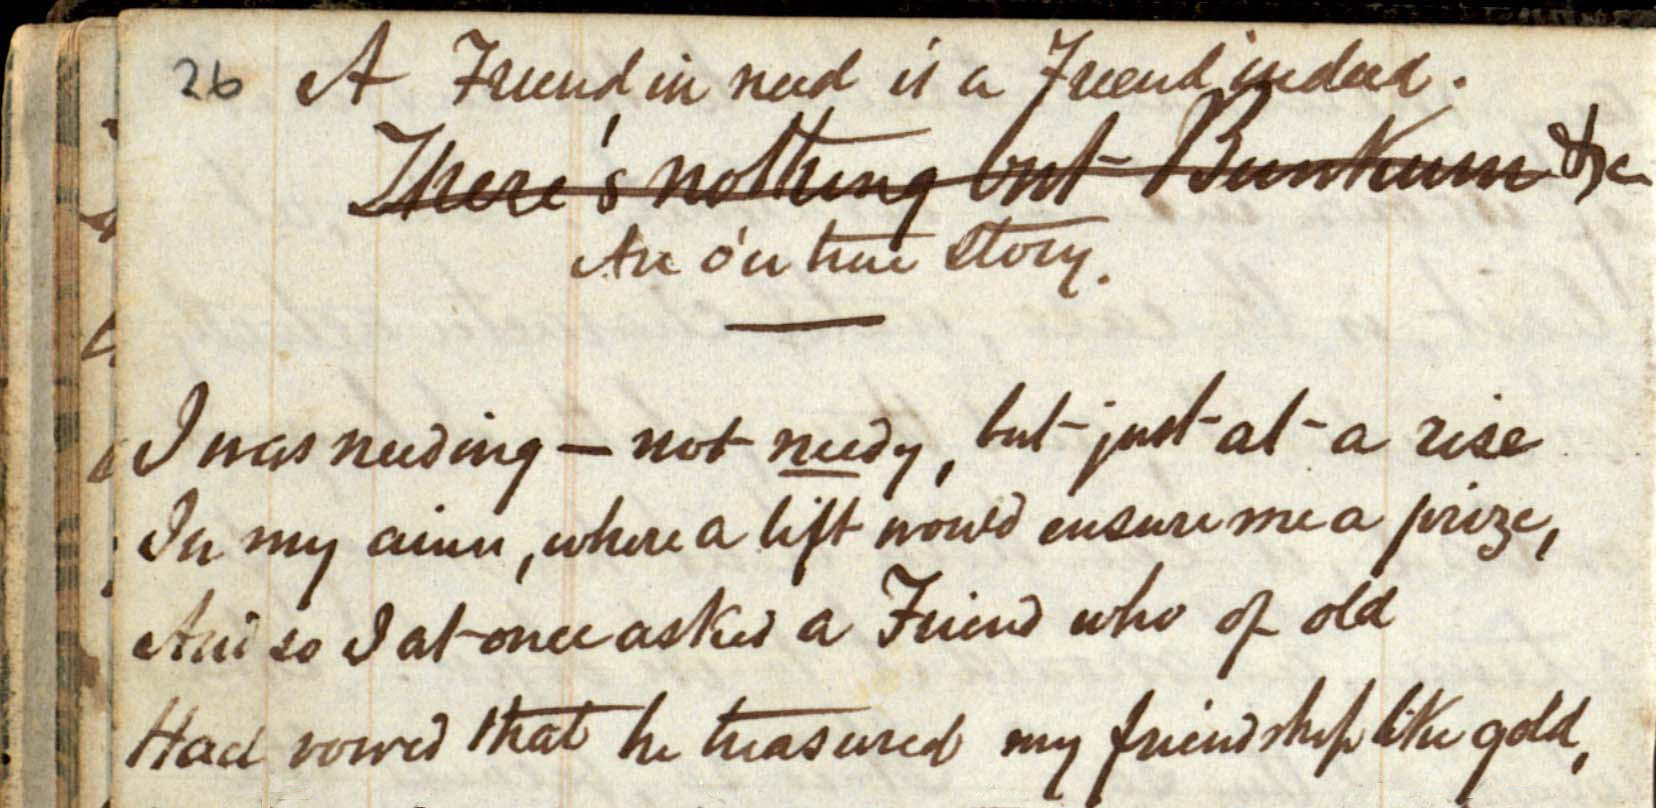 26 A Friend in need is a Friend indeed.
There's nothing but Bunkum &c
An o'er true story.
I was needing — not needy, but just at a rise
In my aims, where a lift would ensure me a prize,
And so I at once asked a Friend who of old
Had vowed that he treasured my friendship like gold,